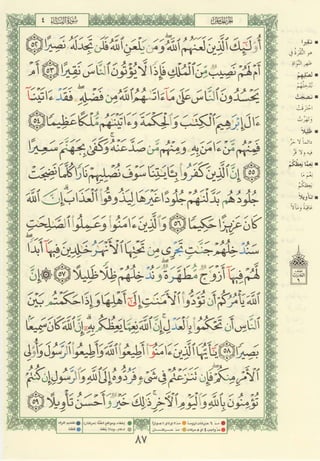 سُورَةُ النِّسَاءِ ٤
أُو۟لَٰٓئِكَ ٱلَّذِينَ لَعَنَهُمُ ٱللَّهُ وَمَن يَلْعَنِ ٱللَّهُ فَلَن تَجِدَ لَهُۥ نَصِيرًا ٥٢
أَمْ لَهُمْ نَصِيبٌ مِّنَ ٱلْمُلْكِ فَإِذًا لَّا يُؤْتُونَ ٱلنَّاسَ نَقِيرًا ٥٣ أَمْ
يَحْسُدُونَ ٱلنَّاسَ عَلَىٰ مَآ ءَاتَىٰهُمُ ٱللَّهُ مِن فَضْلِهِۦ فَقَدْ ءَاتَيْنَآ
ءَالَ إِبْرَٰهِيمَ ٱلْكِتَٰبَ وَٱلْحِكْمَةَ وَءَاتَيْنَٰهُم مُّلْكًا عَظِيمًا ٥٤
فَمِنْهُم مَّنْ ءَامَنَ بِهِۦ وَمِنْهُم مَّن صَدَّ عَنْهُ وَكَفَىٰ بِجَهَنَّمَ سَعِيرًا
٥٥ إِنَّ ٱلَّذِينَ كَفَرُوا۟ بِـَٔايَٰتِنَا سَوْفَ نُصْلِيهِمْ نَارًا كُلَّمَا نَضِجَتْ
جُلُودُهُم بَدَّلْنَٰهُمْ جُلُودًا غَيْرَهَا لِيَذُوقُوا۟ ٱلْعَذَابَ إِنَّ ٱللَّهَ
كَانَ عَزِيزًا حَكِيمًا ٥٦ وَٱلَّذِينَ ءَامَنُوا۟ وَعَمِلُوا۟ ٱلصَّٰلِحَٰتِ
سَنُدْخِلُهُمْ جَنَّٰتٍ تَجْرِى مِن تَحْتِهَا ٱلْأَنْهَٰرُ خَٰلِدِينَ فِيهَآ أَبَدًا
لَّهُمْ فِيهَآ أَزْوَٰجٌ مُّطَهَّرَةٌ وَنُدْخِلُهُمْ ظِلًّا ظَلِيلًا ٥٧ إِنَّ
ٱللَّهَ يَأْمُرُكُمْ أَن تُؤَدُّوا۟ ٱلْأَمَٰنَٰتِ إِلَىٰٓ أَهْلِهَا وَإِذَا حَكَمْتُم بَيْنَ
ٱلنَّاسِ أَن تَحْكُمُوا۟ بِٱلْعَدْلِ إِنَّ ٱللَّهَ نِعِمَّا يَعِظُكُم بِهِۦٓ إِنَّ ٱللَّهَ كَانَ سَمِيعًۢا
بَصِيرًا ٥٨ يَٰٓأَيُّهَا ٱلَّذِينَ ءَامَنُوٓا۟ أَطِيعُوا۟ ٱللَّهَ وَأَطِيعُوا۟ ٱلرَّسُولَ وَأُو۟لِى
ٱلْأَمْرِ مِنكُمْ فَإِن تَنَٰزَعْتُمْ فِى شَىْءٍ فَرُدُّوهُ إِلَى ٱللَّهِ وَٱلرَّسُولِ إِن كُنتُمْ
تُؤْمِنُونَ بِٱللَّهِ وَٱلْيَوْمِ ٱلْـَٔاخِرِ ذَٰلِكَ خَيْرٌ وَأَحْسَنُ تَأْوِيلًا ٥٩
٨٧